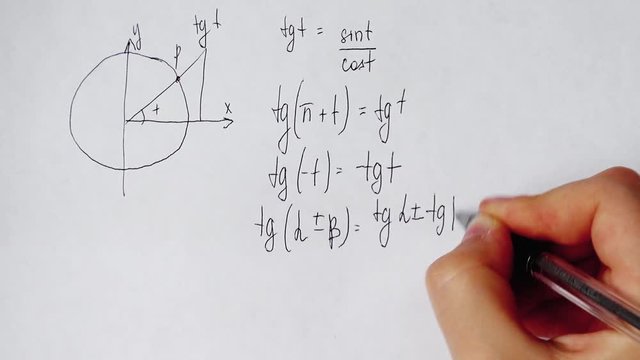 y
tg t
P
t
x
tg t = sin t / cos t
tg(π + t) = tg t
tg(-t) = -tg t
tg(α ± β) = tg α ± tg